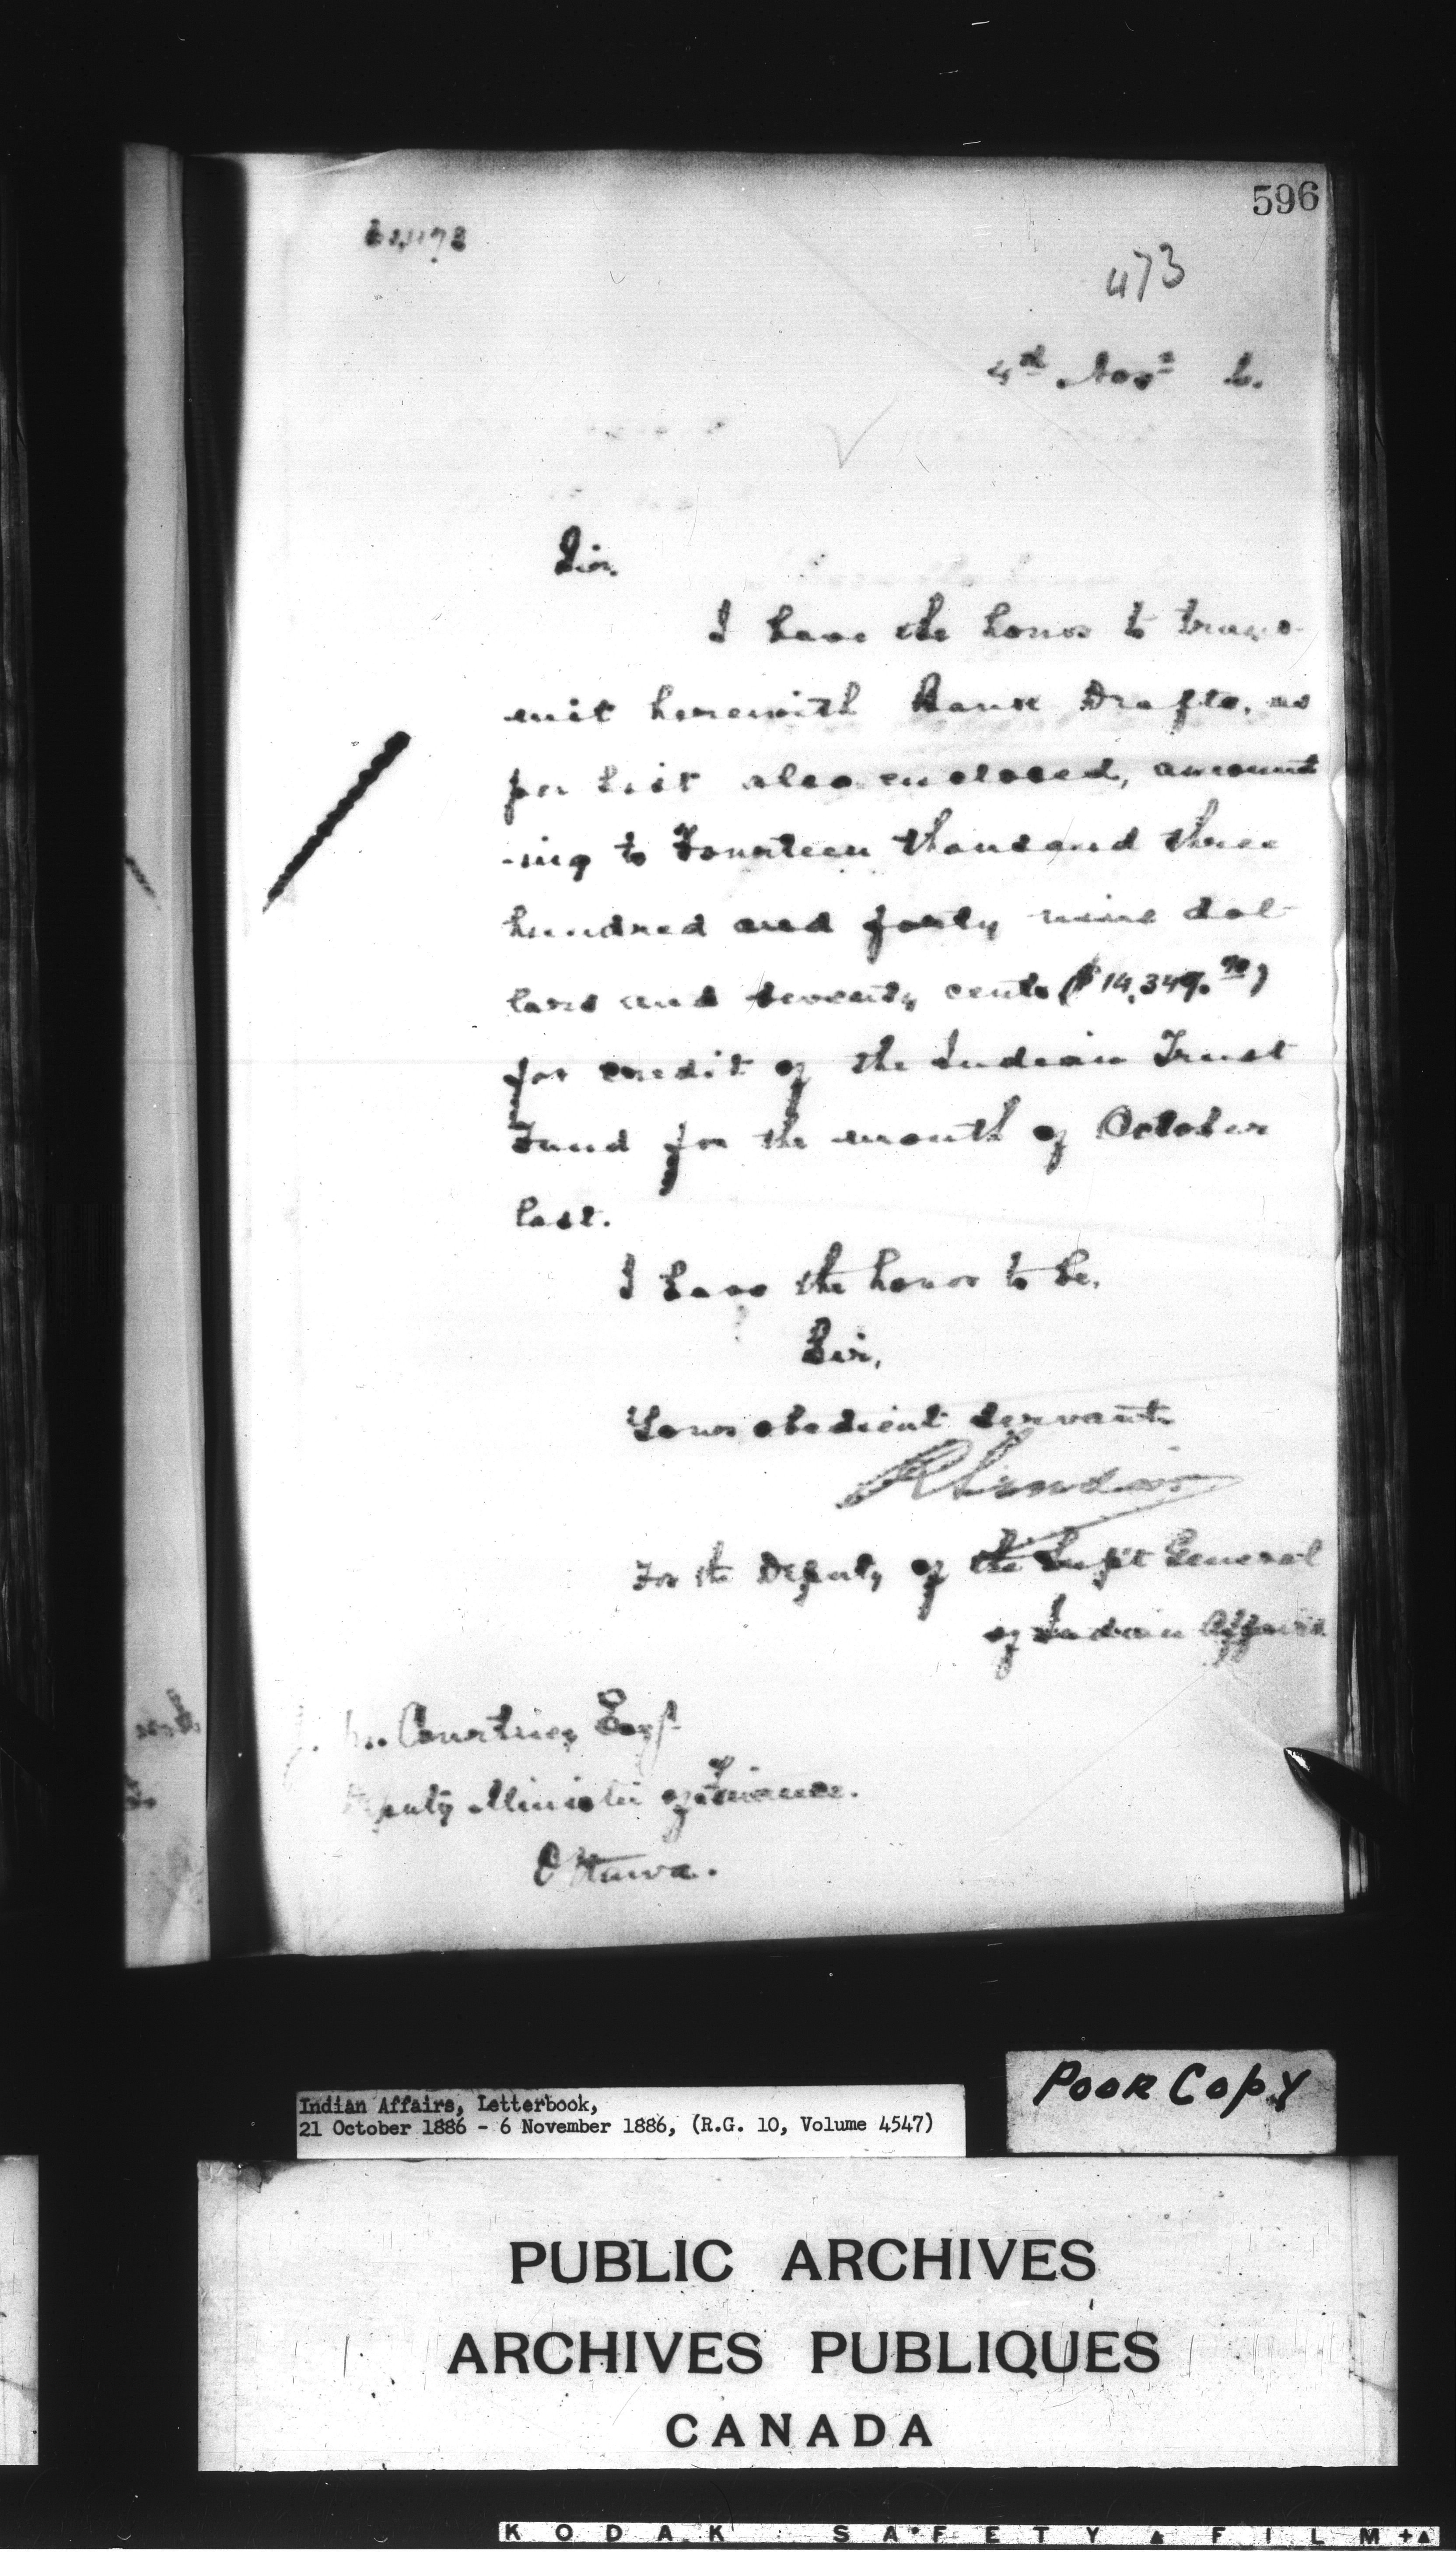 596
473
4th Novr 6.
Sir,
I have the honor to trans-
mit herewith Bank Drafts, as
per list also enclosed, amount
-ing to Fourteen thousand three
hundred and forty nine dol-
lars and seventy cents ($14,349.70)
for credit of the Indian Trust
Fund for the month of October
last.
I have the honor to be,
Sir,
Your obedient servant
R Sinclair
For the Deputy of the Supt General
of Indian Affairs
Courtney Esqr
Deputy Minister of Finance.
Ottawa.
Poor Copy
Indian Affairs, Letterbook,
21 October 1886 - 6 November 1886, (R.G. 10, Volume 4547)
PUBLIC ARCHIVES
ARCHIVES PUBLIQUES
CANADA
KODAK SAFETY FILM